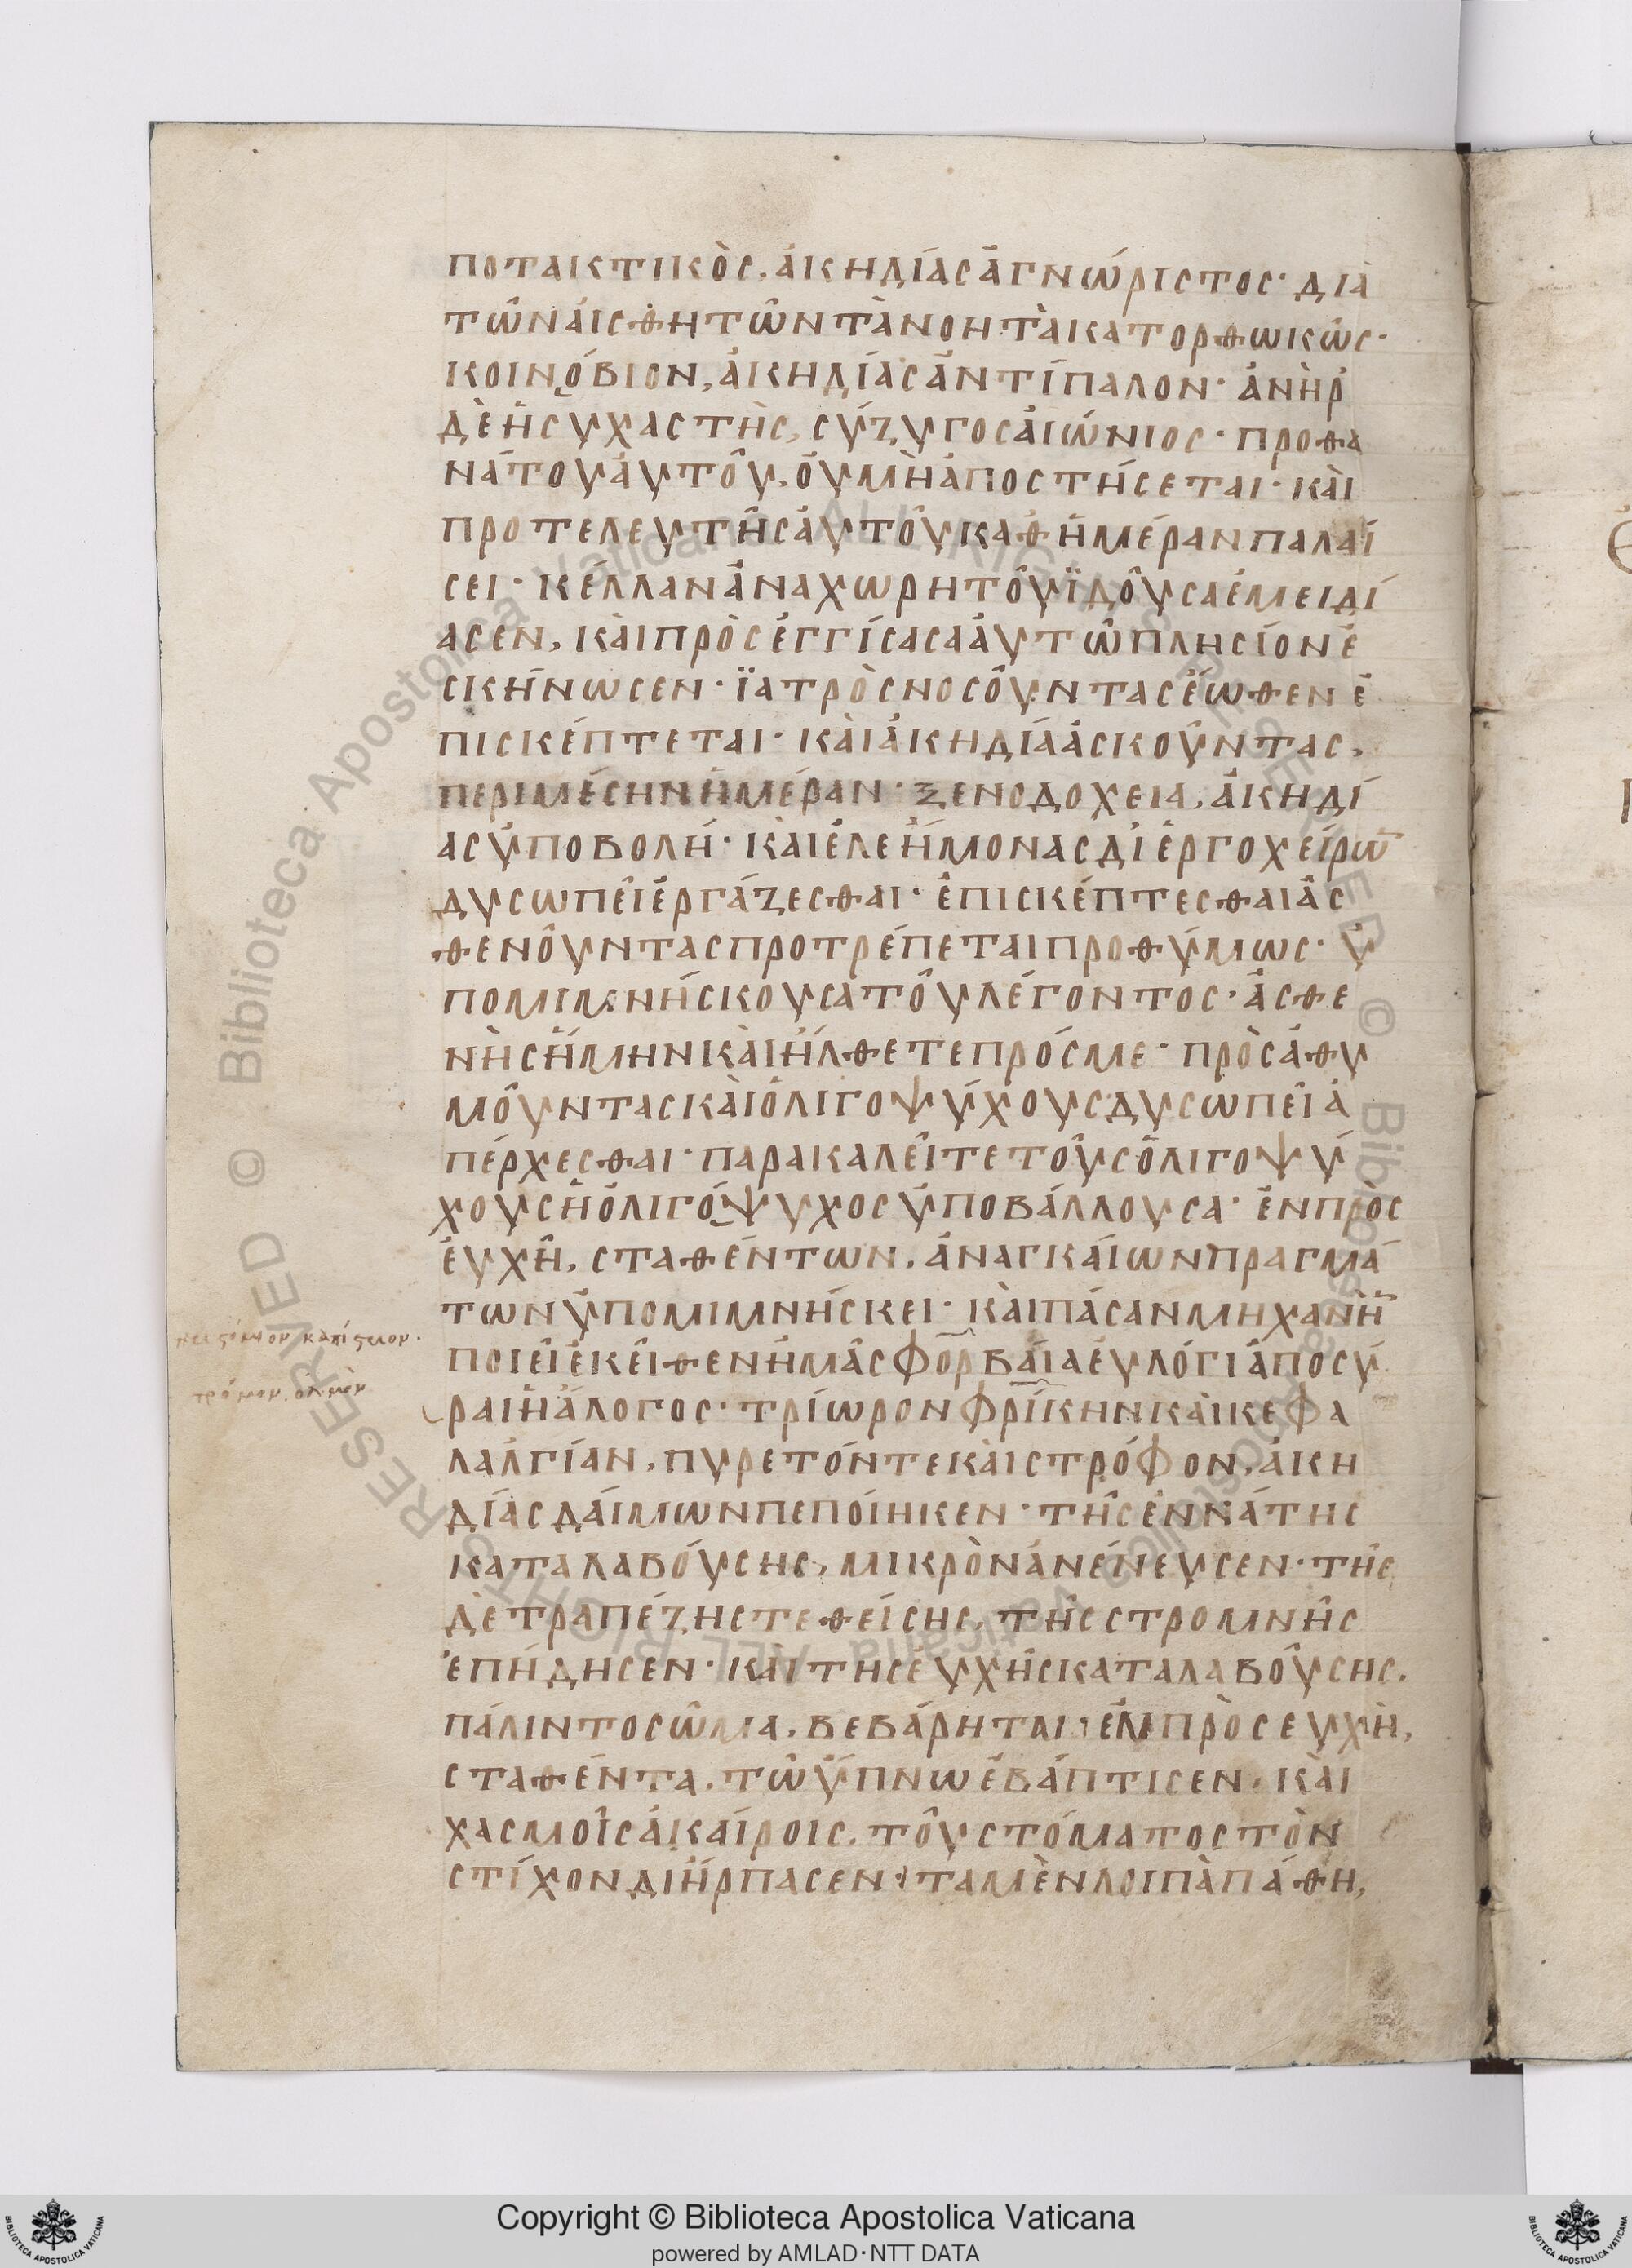 ποτακτικὸς, ἀκηδίας ἀγνώριστος· διὰ
τῶν ἀισθητῶν τὰ νοητὰ κατορθωκῶς·
κοινόβιον, ἀκηδίας ἀντίπαλον· ἀνὴρ
δὲ ἡσυχαστὴς, σύζυγος ἀιώνιος· προθα
νάτου ἀυτοῦ, ὀυ μὴ ἀποστήσεται· κὰι
προτελευτῆς ἀυτοῦ καθ ἡμέραν παλαί
σει· κέλλαν ἀναχωρητοῦ ϊδοῦσα ἐμειδί
ασεν, κὰι πρὸσεγγίσασα ἀυτῶ πλησίον ἐ
σκήνωσεν· ϊατρὸς νοσοῦντας ἕωθεν ἐ
πισκέπτεται· κὰι ἀκηδία ἀσκοῦντας,
περιμέσην ἡμέραν· ξενοδοχεια, ἀκηδί
ας ὑποβολή· κὰι ἐλεήμονας δι ἐργοχείρω
δυσωπεῖ ἐργάζεσθαι· ἐπισκέπτεσθαι ἀσ
θενοῦντας προτρέπεται προθύμως· ὑ
πομιμνήσκουσα τοῦ λέγοντος· ἀσθε
νὴς ἤμην κὰι ἤλθετε πρός με· πρὸς ἀθυ
μοῦντας κὰι ὀλιγοψύχους δυσωπεῖ ἀ
πέρχεσθαι· παρακαλεῖτε τοὺς ὀλιγοψύ
χους ἡ ὀλιγόψυχος ὑποβάλλουσα· ἐν πρὸς
ἐυχῆ, σταθέντων, ἀναγκάιων πραγμά
των ὑπομιμνήσκει· κὰι πάσαν μηχανὴ
ποιεῖ ἐκεῖθεν ἡμᾶς φορβάια ἐυλόγι ἀποσύ
ραι ἡ ἄλογος· τρίωρον φρίκην κὰι κεφα
λαλγίαν, πυρετόν τε κὰι στρόφον, ἀκη
δίας δάιμων πεποίηκεν· τῆς ἐννάτης
καταλαβούσης, μικρὸν ἀνένευσεν· τῆς
δὲ τραπέζης τεθείσης, τῆς στρομνῆς
ἐπήδησεν· κὰι της ἐυχῆς καταλαβούσης,
πάλιν το σῶμα, βεβάρηται· ἐν πρὸσευχὴ,
σταθέντα, τῶ ὕπνω ἐβάπτισεν, κὰι
χασμοῖς ἀκαίροις, τοῦ στόματος τὸν
στίχον διήρπασεν· τα μὲν λοιπὰ πάθη,